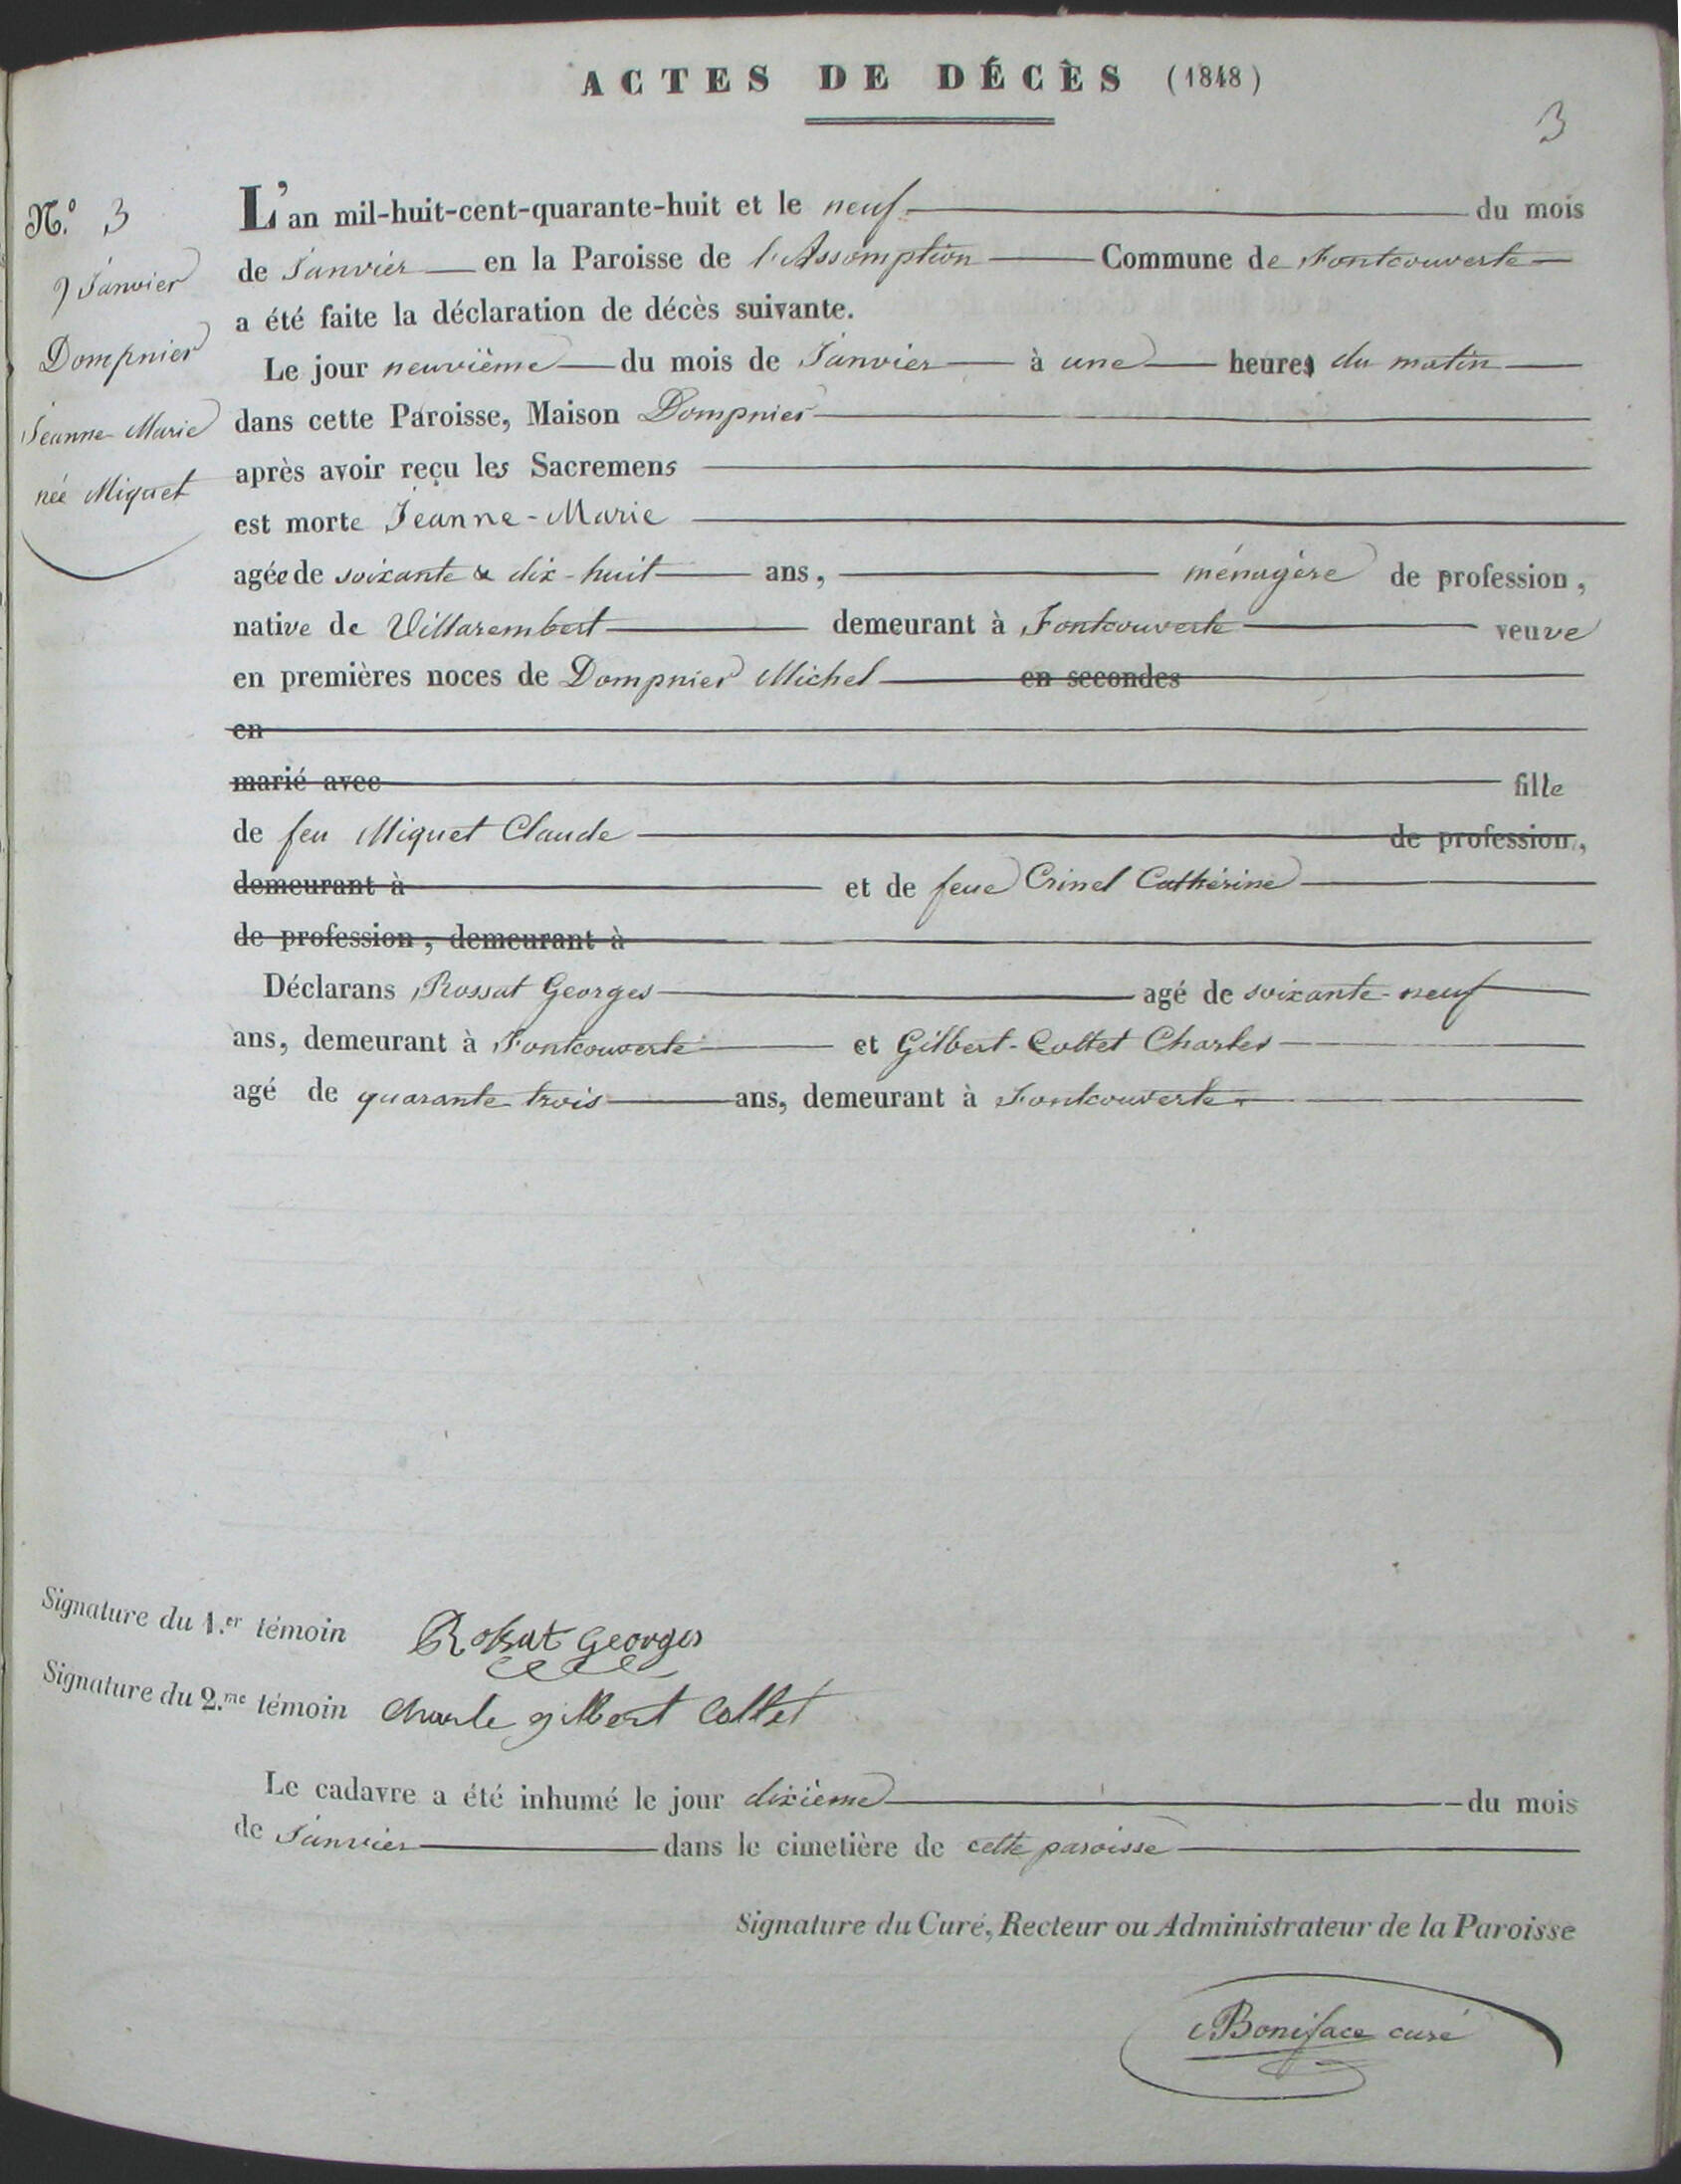 ACTES DE DÉCÈS (1848)
3
N.º 3
9 Janvier
Dompnier
Jeanne-Marie
née Miquet
L'an mil-huit-cent-quarante-huit et le neuf du mois
de Janvier en la Paroisse de l'Assomption Commune de Fontcouverte
a été faite la déclaration de décès suivante.
Le jour neuvième du mois de Janvier à une heures du matin
dans cette Paroisse, Maison Dompnier
après avoir reçu les Sacremens
est morte Jeanne-Marie
agée de soixante & dix-huit ans, ménagère de profession,
native de Villarembert demeurant à Fontcouverte veuve
en premières noces de Dompnier Michel en secondes
en
marié avec fille
de feu Miquet Claude de profession,
demeurant à et de feue Crinel Cathérine
de profession, demeurant à
Déclarans Rossat Georges agé de soixante-neuf
ans, demeurant à Fontcouverte et Gilbert-Collet Charles
agé de quarante trois ans, demeurant à Fontcouverte.
Signature du 1.er témoin Rossat Georges
Signature du 2.me témoin Charle gilbert Collet
Le cadavre a été inhumé le jour dixième du mois
de Janvier dans le cimetière de cette paroisse
Signature du Curé, Recteur ou Administrateur de la Paroisse
Boniface curé